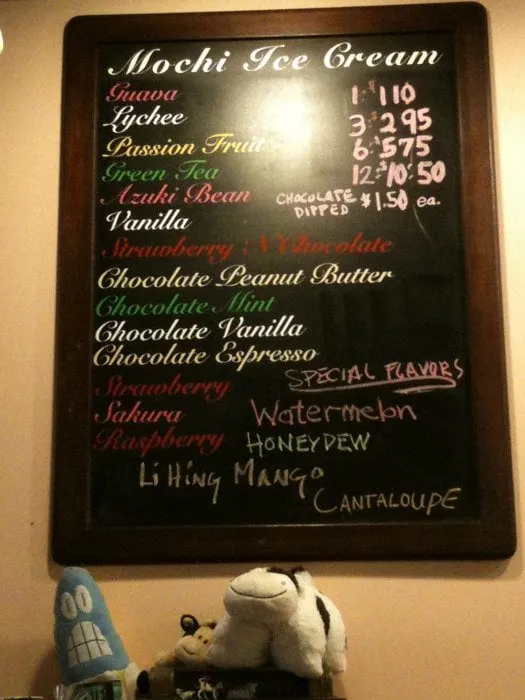 Mochi Ice Cream
Guava 1 $110
Lychee 3 $295
Passion Fruit 6 $575
Green Tea 12 $10.50
Azuki Bean CHOCOLATE DIPPED $1.50 ea.
Vanilla
Strawberry N' Chocolate
Chocolate Peanut Butter
Chocolate Mint
Chocolate Vanilla
Chocolate Espresso
Strawberry SPECIAL FLAVORS
Sakura Watermelon
Raspberry HONEYDEW
Li Hing MANGO
CANTALOUPE